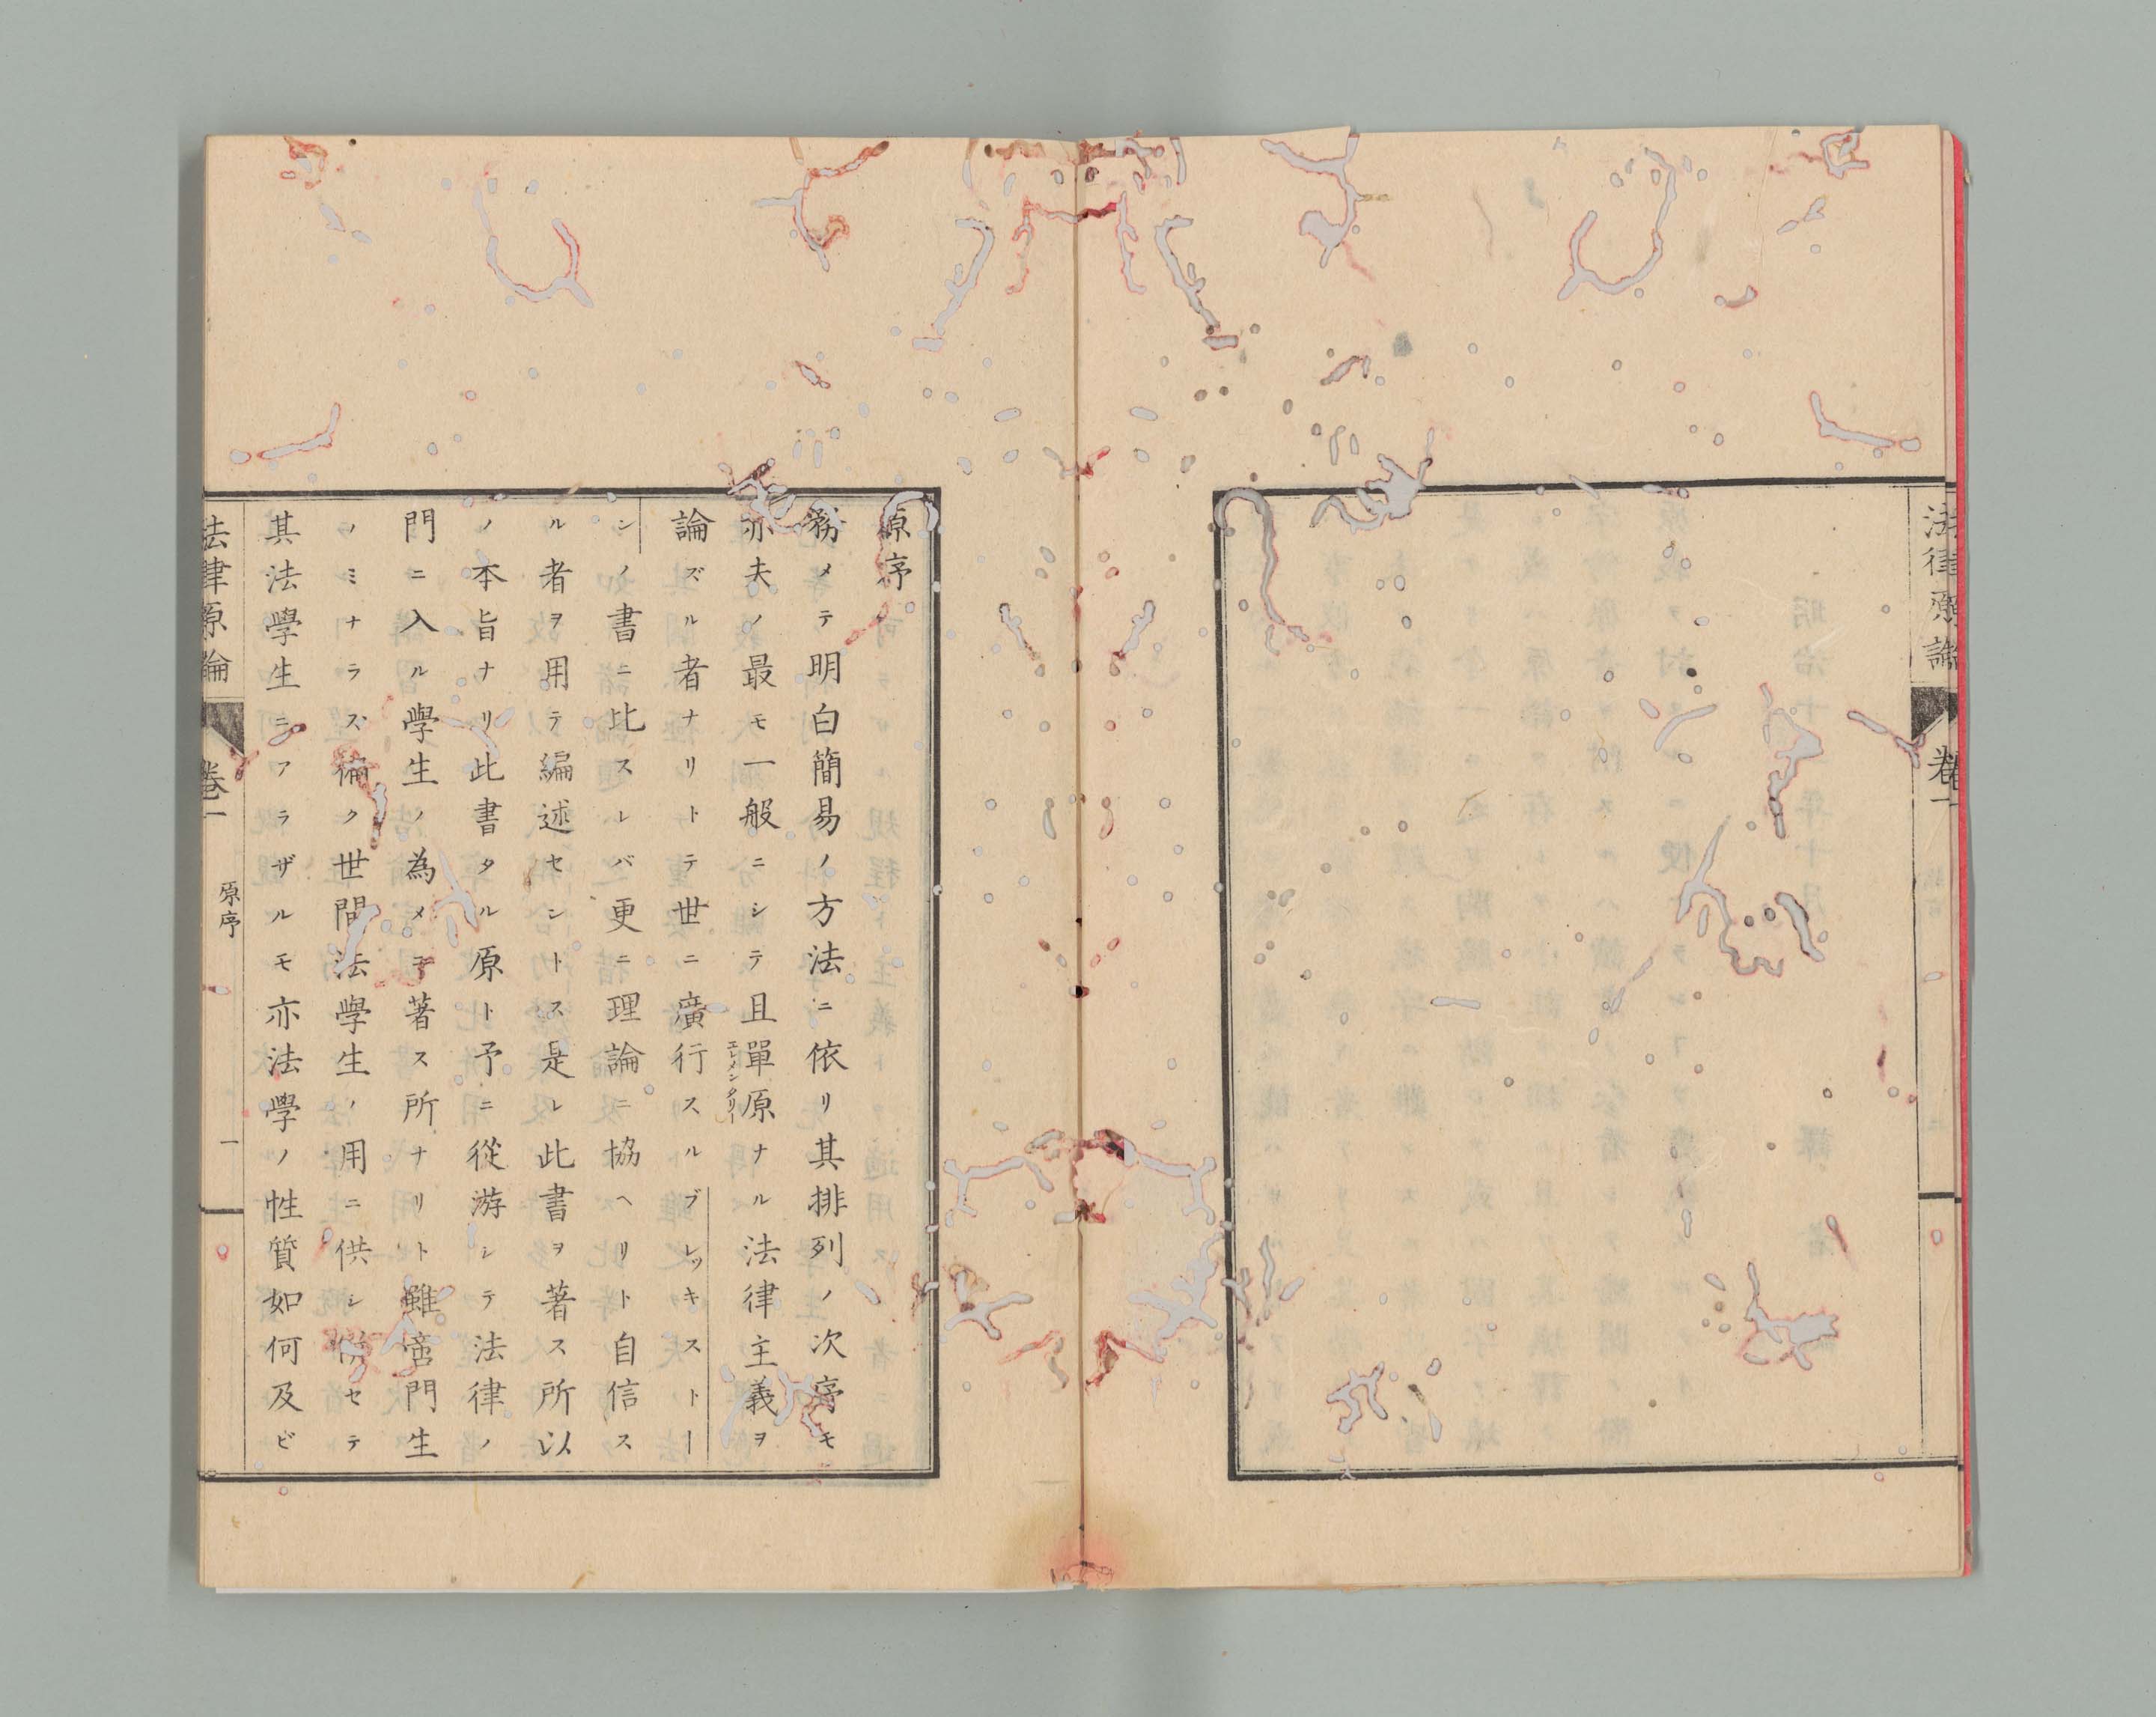 法律原論
卷一
原序
務メテ明白簡易ノ方法ニ依リ其排列ノ次序モ
亦夫ノ最モ一般ニシテ且單原ナル法律主義ヲ
エレメンタリー
論ズル者ナリトテ世ニ廣行スルブレッキストー
ンノ書ニ比スレバ更ニ理論ニ協ヘリト自信ス
ル者ヲ用テ編述セントス是レ此書ヲ著ス所以
ノ本旨ナリ此書タル原ト予ニ從游シテ法律ノ
門ニ入ル學生ノ為メニ著ス所ナリト雖啻門生
ノミナラズ徧ク世間法學生ノ用ニ供シセテ
其法學生ニアラザルモ亦法學ノ性質如何及ビ
法律原論
卷一
原序
一